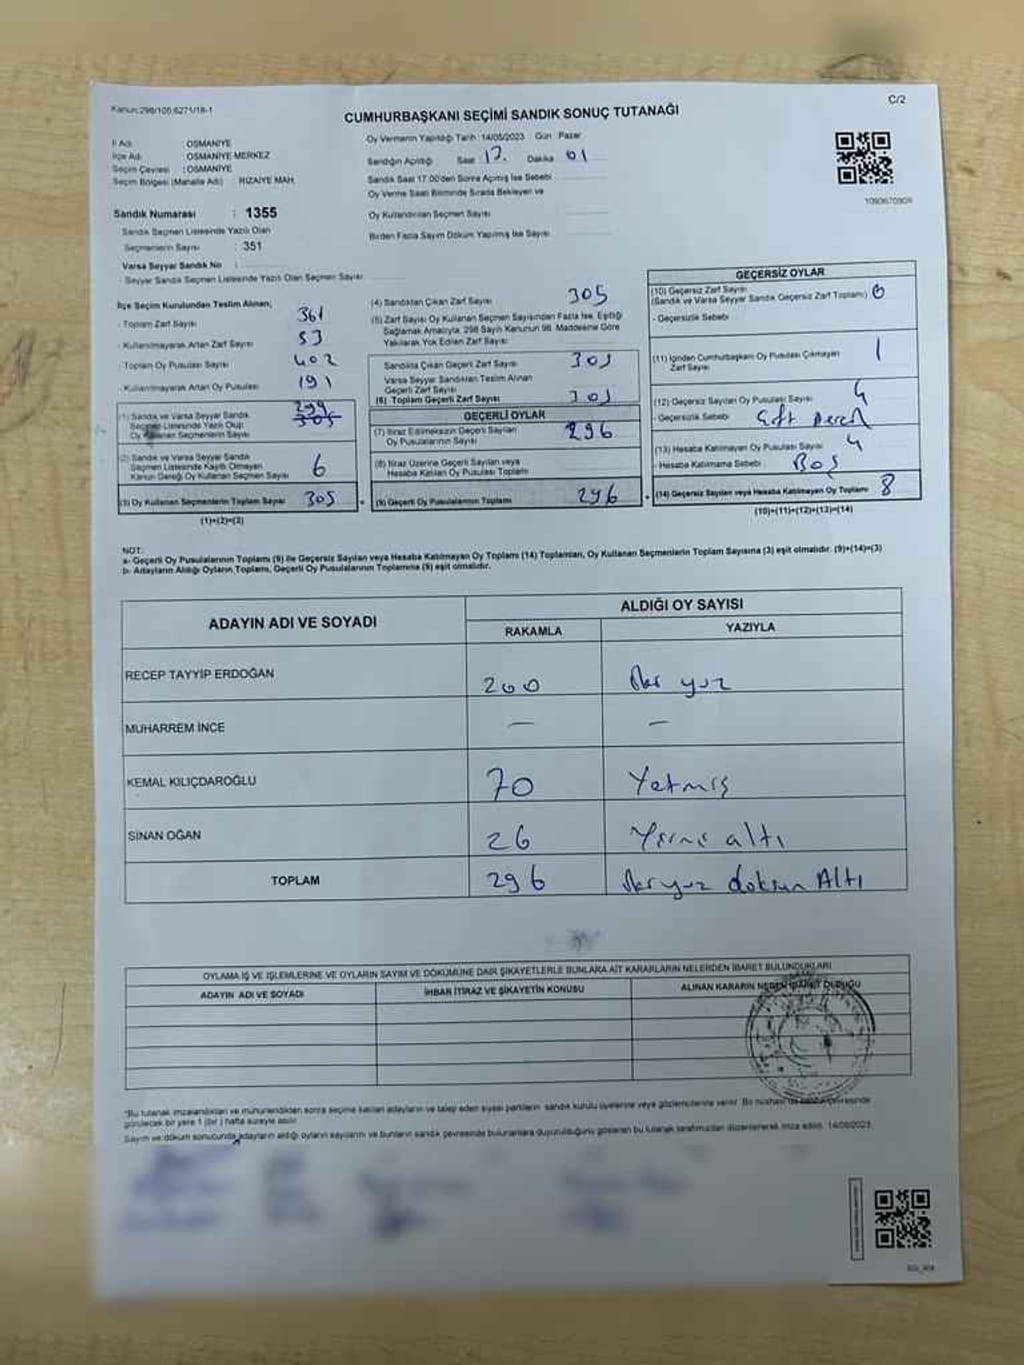 Kanun:298/105:6271/18-1
C/2
CUMHURBAŞKANI SEÇİMİ SANDIK SONUÇ TUTANAĞI
İl Adı : OSMANİYE
İlçe Adı : OSMANİYE MERKEZ
Seçim Çevresi : OSMANİYE
Seçim Bölgesi (Mahalle Adı) : RIZAİYE MAH.
Sandık Numarası : 1355
Sandık Seçmen Listesinde Yazılı Olan
Seçmenlerin Sayısı : 351
Varsa Seyyar Sandık No :
Seyyar Sandık Seçmen Listesinde Yazılı Olan Seçmen Sayısı
Oy Vermenin Yapıldığı Tarih :14/05/2023 Gün : Pazar
Sandığın Açıldığı Saat 17. Dakika 01
Sandık Saat 17.00'den Sonra Açılmış İse Sebebi
Oy Verme Saati Bitiminde Sırada Bekleyen ve
Oy Kullandırılan Seçmen Sayısı
Birden Fazla Sayım Döküm Yapılmış İse Sayısı
1090670909
İlçe Seçim Kurulundan Teslim Alınan;
- Toplam Zarf Sayısı 361
- Kullanılmayarak Artan Zarf Sayısı 53
- Toplam Oy Pusulası 402
- Kullanılmayarak Artan Oy Pusulası 191
299
(1) Sandık ve Varsa Seyyar Sandık 305
Seçmen Listesinde Yazılı Olup
Oy Kullanan Seçmenlerin Sayısı
(2) Sandık ve Varsa Seyyar Sandık
Seçmen Listesinde Kayıtlı Olmayan 6
Kanun Gereği Oy Kullanan Seçmen Sayısı
(3) Oy Kullanan Seçmenlerin Toplam Sayısı 305
(1)+(2)=(3)
(4) Sandıktan Çıkan Zarf Sayısı 305
(5) Zarf Sayısı Oy Kullanan Seçmen Sayısından Fazla İse, Eşitliği
Sağlamak Amacıyla, 298 Sayılı Kanunun 98. Maddesine Göre
Yakılarak Yok Edilen Zarf Sayısı
Sandıkta Çıkan Geçerli Zarf Sayısı 305
Varsa Seyyar Sandıktan Teslim Alınan
Geçerli Zarf Sayısı
(6) Toplam Geçerli Zarf Sayısı 305
GEÇERLİ OYLAR
(7) İtiraz Edilmeksizin Geçerli Sayılan
Oy Pusulalarının Sayısı 296
(8) İtiraz Üzerine Geçerli Sayılan veya
Hesaba Katılan Oy Pusulası Toplamı
(9) Geçerli Oy Pusulalarının Toplamı 296
GEÇERSİZ OYLAR
(10) Geçersiz Zarf Sayısı
(Sandık ve Varsa Seyyar Sandık Geçersiz Zarf Toplamı) 0
- Geçersizlik Sebebi
(11) İçinden Cumhurbaşkanı Oy Pusulası Çıkmayan 1
Zarf Sayısı
(12) Geçersiz Sayılan Oy Pusulası Sayısı 4
- Geçersizlik Sebebi
(13) Hesaba Katılmayan Oy Pusulası Sayısı 4
- Hesaba Katılmama Sebebi Boş
(14) Geçersiz Sayılan veya Hesaba Katılmayan Oy Toplamı 8
(10)+(11)+(12)+(13)=(14)
NOT:
a- Geçerli Oy Pusulalarının Toplamı (9) ile Geçersiz Sayılan veya Hesaba Katılmayan Oy Toplamı (14) Toplamları, Oy Kullanan Seçmenlerin Toplam Sayısına (3) eşit olmalıdır. (9)+(14)=(3)
b- Adayların Aldığı Oyların Toplamı, Geçerli Oy Pusulalarının Toplamına (9) eşit olmalıdır.
ADAYIN ADI VE SOYADI
ALDIĞI OY SAYISI
RAKAMLA YAZIYLA
RECEP TAYYİP ERDOĞAN 200 İki yüz
MUHARREM İNCE — —
KEMAL KILIÇDAROĞLU 70 Yetmiş
SİNAN OĞAN 26 Yirmi altı
TOPLAM 296 İki yüz doksan Altı
OYLAMA İŞ VE İŞLEMLERİNE VE OYLARIN SAYIM VE DÖKÜMÜNE DAİR ŞİKAYETLERLE BUNLARA AİT KARARLARIN NELERDEN İBARET BULUNDUKLARI
ADAYIN ADI VE SOYADI İHBAR İTİRAZ VE ŞİKAYETİN KONUSU ALINAN KARARIN NEDEN İBARET OLDUĞU
*Bu tutanak imzalandıktan ve mühürlendikten sonra seçime katılan adayların ve talep eden siyasi partilerin sandık kurulu üyelerine veya gözlemcilerine verilir. Bir nüshası da sandık çevresinde
görülecek bir yere 1 (bir) hafta süreyle asılır.
Sayım ve döküm sonucunda adayların aldığı oyların sayılarını ve bunların sandık çevresinde bulunanlara duyurulduğunu gösteren bu tutanak tarafımızdan düzenlenerek imza edildi. 14/05/2023